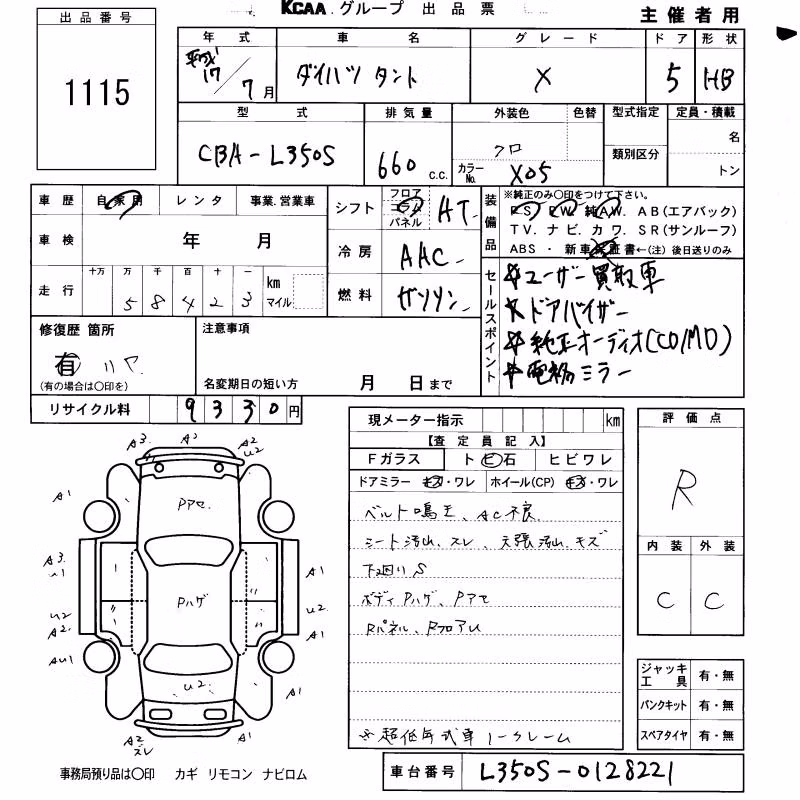 KCAA.グループ 出品票
主催者用
出品番号
1115
年式 車名 グレード ドア 形状
平成17/7月 ダイハツ タント X 5 HB
型式 排気量 外装色 色替 型式指定 定員・積載
CBA-L350S 660 c.c. クロ 類別区分 名
カラーNo. X05 トン
車歴 自家用 レンタ 事業.営業車
車検 年 月
走行 十万 万 千 百 十 一 km マイル
5 8 4 2 3
シフト フロア コラム パネル AT
冷房 AAC
燃料 ガソリン
装備品 ※純正のみ〇印をつけて下さい。
PS PW 純AW. AB(エアバック)
TV. ナビ. カワ. SR(サンルーフ)
ABS ・ 新車保証書←(注) 後日送りのみ
セールスポイント
ユーザー買取車
ドアバイザー
純正オーディオ(CD/MD)
電格ミラー
修復歴 箇所
有 リヤ
(有の場合は〇印を)
注意事項
名変期日の短い方 月 日まで
リサイクル料 9330円
現メーター指示 km
【査定員記入】
Fガラス ト ビ石 ヒビワレ
ドアミラー キズ・ワレ ホイール(CP) キズ・ワレ
ベルト鳴王、AC不良
シート汚れ、スレ、天張汚れ、キズ
下廻りS
ボディPハゲ、Pアセ
Rパネル、RフロアU
※超低年式車ノークレーム
評価点
R
内装 外装
C C
ジャッキ工具 有・無
パンクキット 有・無
スペアタイヤ 有・無
A3 A3 A2 U2
A1
Pアセ.
A3
A1
U2
Pハゲ
U2
A2
A1
AU1
U2
A1
A2 スレ
A1
事務局預り品は〇印 カギ リモコン ナビロム
車台番号 L350S-0128221